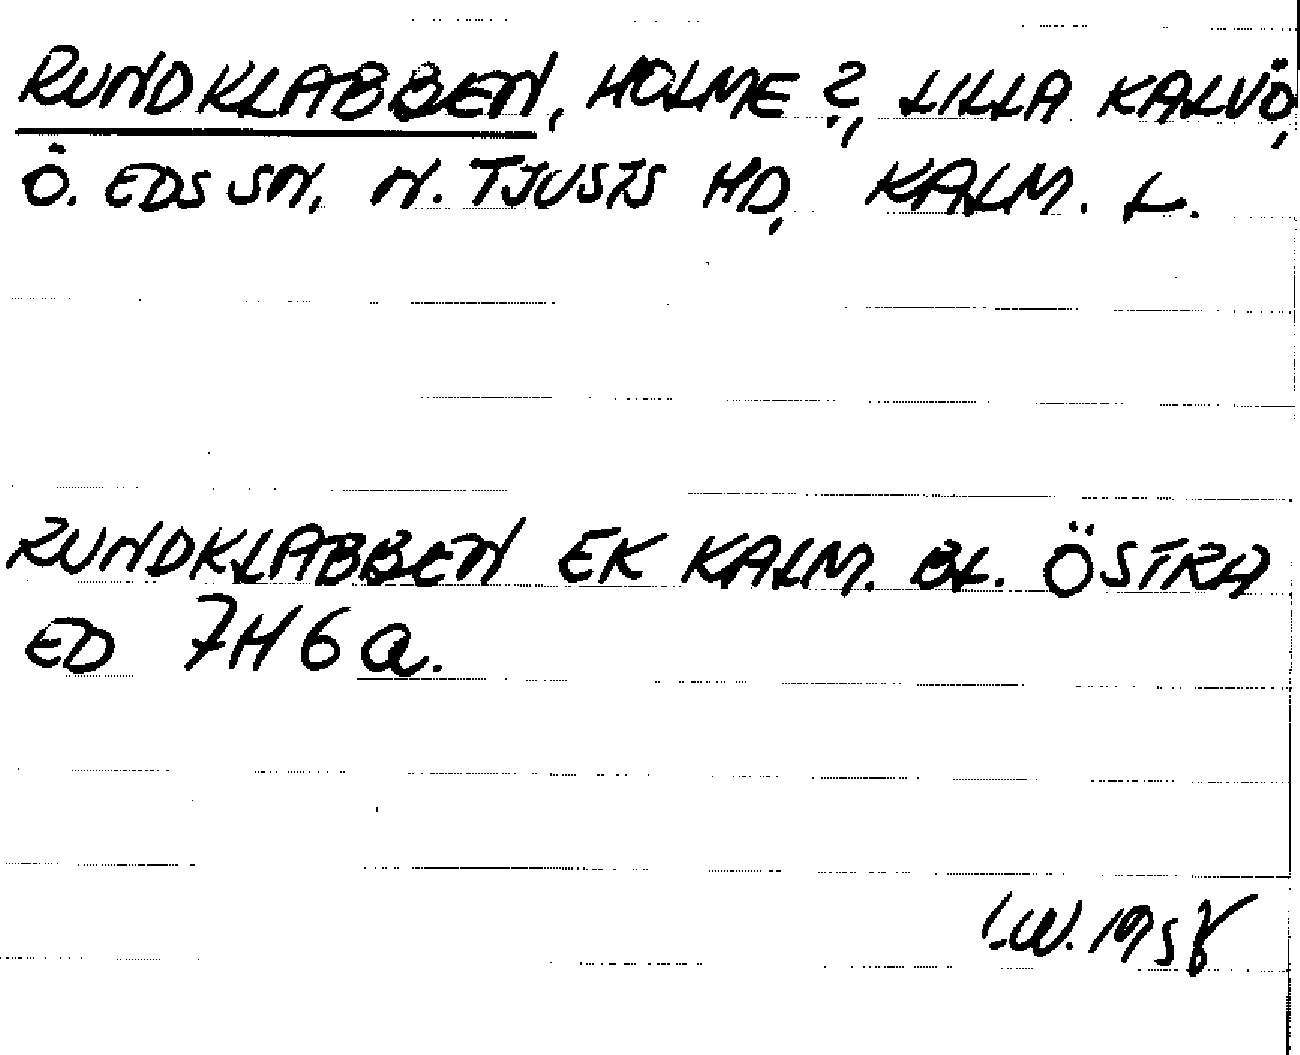 RUNDKLABBEN, HOLME ?, LILLA KALVÖ,
Ö. EDS SN, N. TJUSTS HD, KALM. L.
RUNDKLABBEN EK KALM. BL. ÖSTRA
ED 7H6a.
I.W. 1958